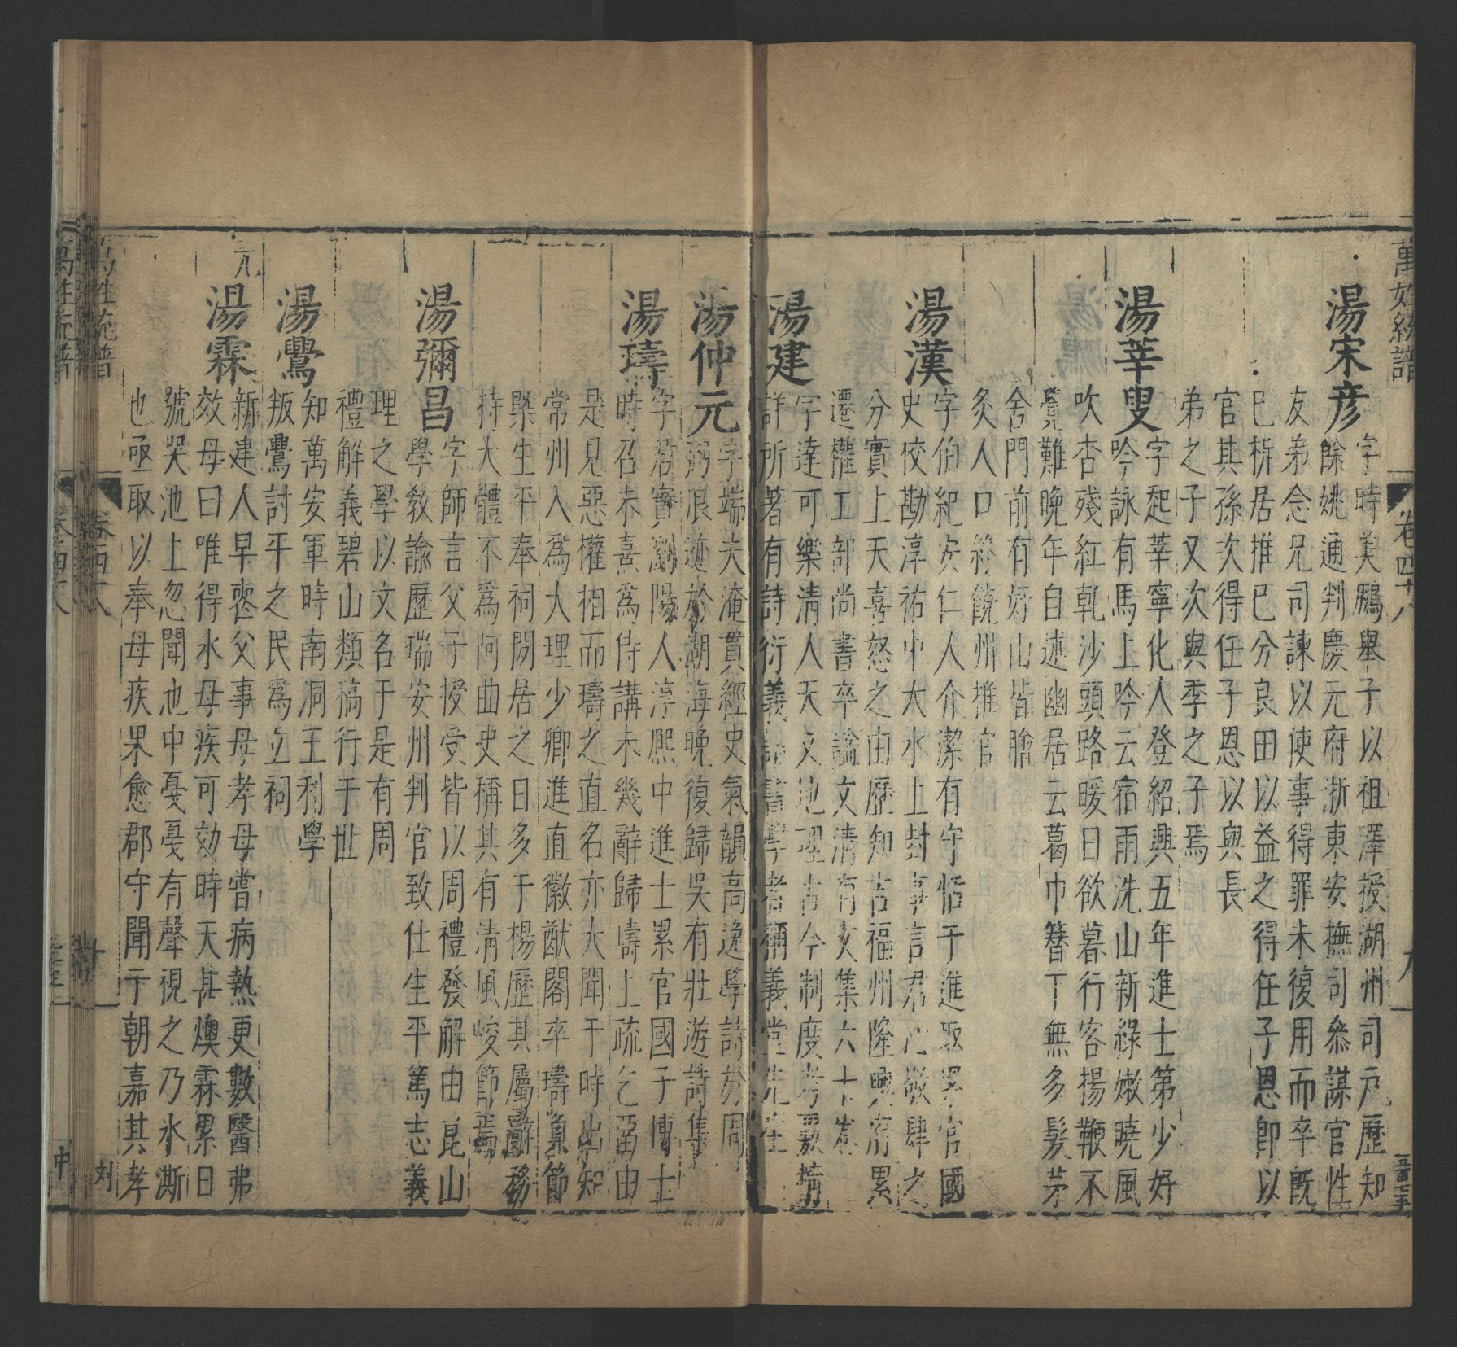 湯宋彦
字時美鵬舉子以祖澤授湖州司户歷知
餘姚通判慶元府浙東安撫司叅謀官性
友弟念兄司諫以使事得罪未復用而卒旣
巳析居推巳分良田以益之得任子恩卽以
官其孫次得任子恩以與長
弟之子又次與季之子焉
湯莘叟
字起莘寧化人登紹興五年進士第少好
吟詠有馬上吟云宿雨洗山新綠嫩曉風
吹杏殘紅乾沙頭路暖日欲暮行客揚鞭不
覺難晚年自述幽居云葛巾簪下無多髮茅
舍門前有好山皆膾
炙人口 終饒州推官
湯漢
字伯紀安仁人介潔有守恬于進取學官國
史校勘淳祐中大水上封事言君心敬肆之
分實上天喜怒之由歷知吉福州隆興府累
遷權工部尚書卒諡文清有文集六十卷
湯建
字達可樂清人天文地理古今制度考覈精
詳所著有詩衍義 學者稱義堂先生
湯仲元
字端夫淹貫經史氣韻高逸學詩於周
弼浪迹於湖海晚復歸吳有壯遊詩集
湯璹
字君寶瀏陽人淳熙中進士累官國子博士
時召朱熹爲侍講未幾辭歸璹上疏乞留由
是見惡權相而璹之直名亦大聞于時出知
常州入爲大理少卿進直徽猷閣卒璹負節
槩生平奉祠閑居之日多于揚歷其屬辭務
持大體不爲阿曲史稱其有清風峻節焉
湯彌昌
字師言父子授受皆以周禮發解由崑山
學教諭歷瑞安州判官致仕生平篤志義
理之學以文名于是有周
禮解義碧山類稿行于世
湯鷽
知萬安軍時南洞王利學
叛鷽討平之民爲立祠
元
湯霖
新建人早喪父事母孝母嘗病熱更數醫弗
效母曰唯得氷母疾可効時天甚燠霖累日
號哭池上忽聞池中戞戞有聲視之乃氷澌
也亟取以奉母疾果愈郡守聞于朝嘉其孝
萬姓統譜
卷四十八
九
萬姓統譜
卷四十八
十
刘